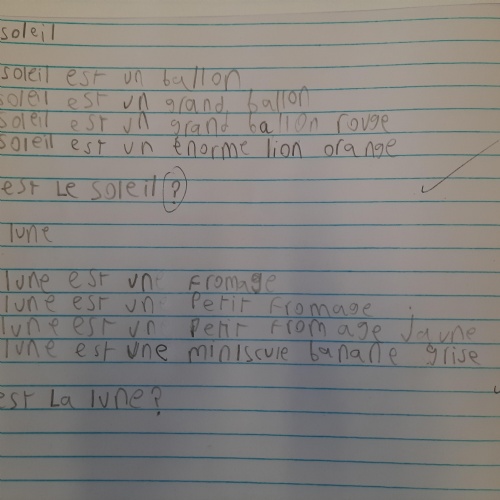 soleil
soleil est un ballon
soleil est un grand ballon
soleil est un grand ballon rouge
soleil est un énorme lion orange
est Le soleil?
lune
lune est un fromage
lune est un Petit fromage
lune est un Petit fromage jaune
lune est une miniscule banane grise
est La lune?